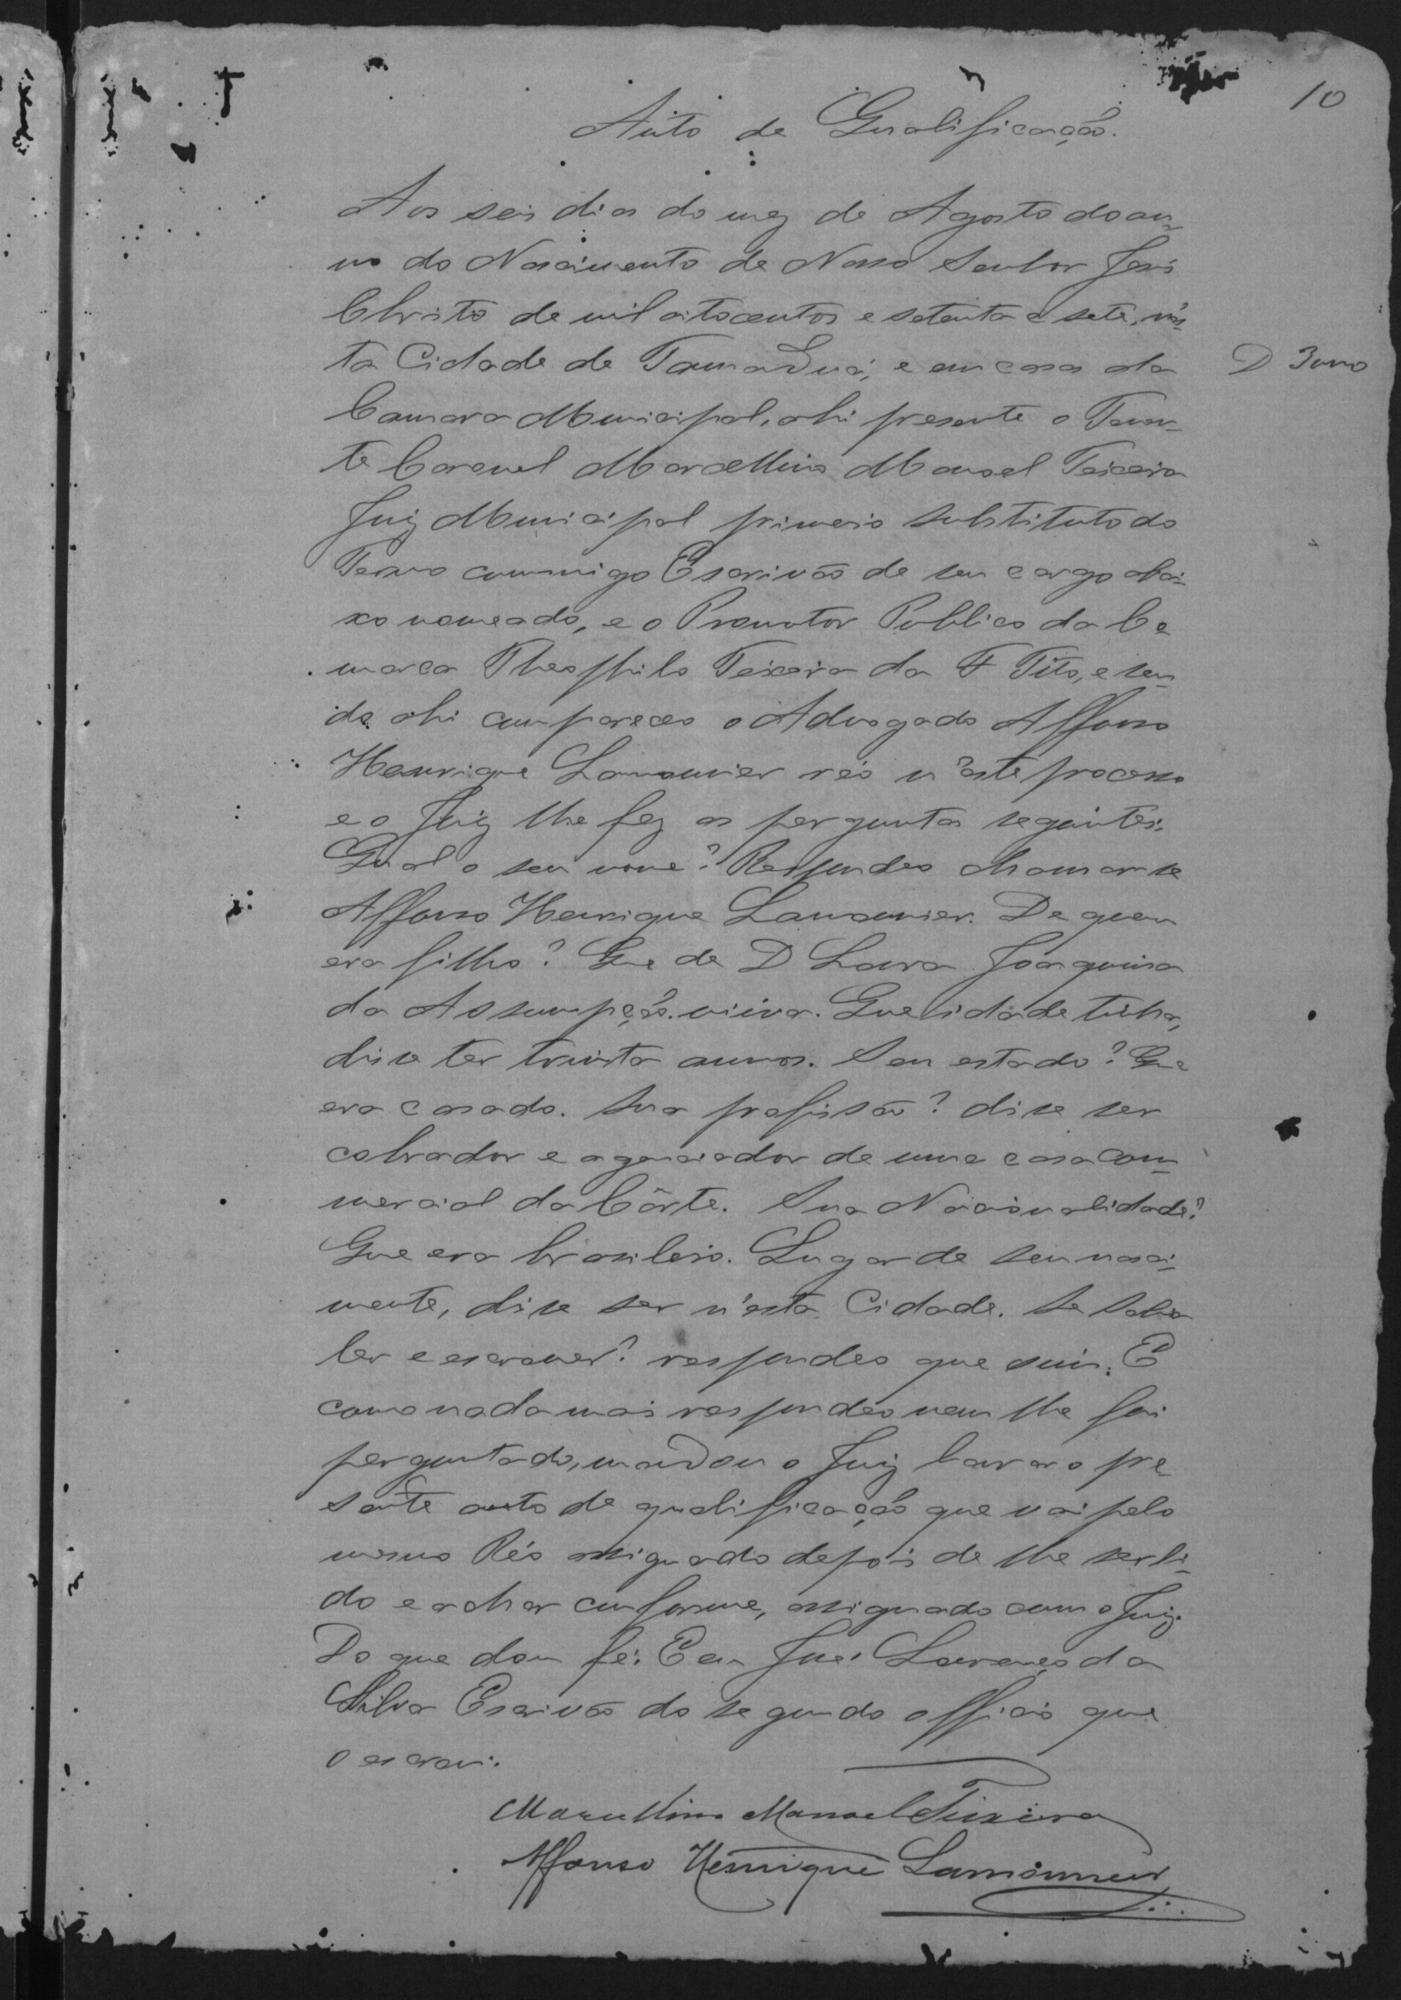 10
Auto de Qualificação.
Aos seis dias do mez de Agosto do an-
no do Nascimento de Nosso Senhor Jesus
Christo de mil oitocentos e setenta e sete, nes-
ta Cidade de Tamanduá, e em casa da
D
Camara Municipal, ahi presente o Tenen-
te Coronel Marcellino Manoel Teixeira
Juiz Municipal primeiro substituto do
Termo commigo Escrivão de seu cargo abai-
xo nomeado, e o Promotor Publico da Co
marca Theophilo Teixeira da F Tito, e sen-
do ahi compareceo o Advogado Affonso
Henrique Lamounier réo n'este processo
e o Juiz lhe fez as pergunta seguintes:
Qual o seu nome? Respondeo chamar se
Affonso Henrique Lamounier. De quem
era filho? Que de D Lara Joaquina
da Assumpção viúva. Que idade tinha,
disse ter trinta annos. Seu estado? Que
era casado. Sua profissão? disse ser
cobrador e agenciador de uma casa com-
mercial da Côrte. Sua Nacionalidade?
Que era brasileiro. Lugar de seu nasci-
mento, disse ser n'esta Cidade. Se sabia
ler e escrever? respondeo que sim. E
como nada mais respondeo nem lhe foi
perguntado, mandou o Juiz lavrar o pre
sente auto de qualificação que vai pelo
mesmo Réo assignado depois de lhe ser li-
do e achar conforme, assignado com o Juiz.
Do que dou fé. E eu José Lourenço da
Silva Escrivão do segundo officio que
o escrevi.
Marcellino Manoel Teixeira
Affonso Henrique Lamounier